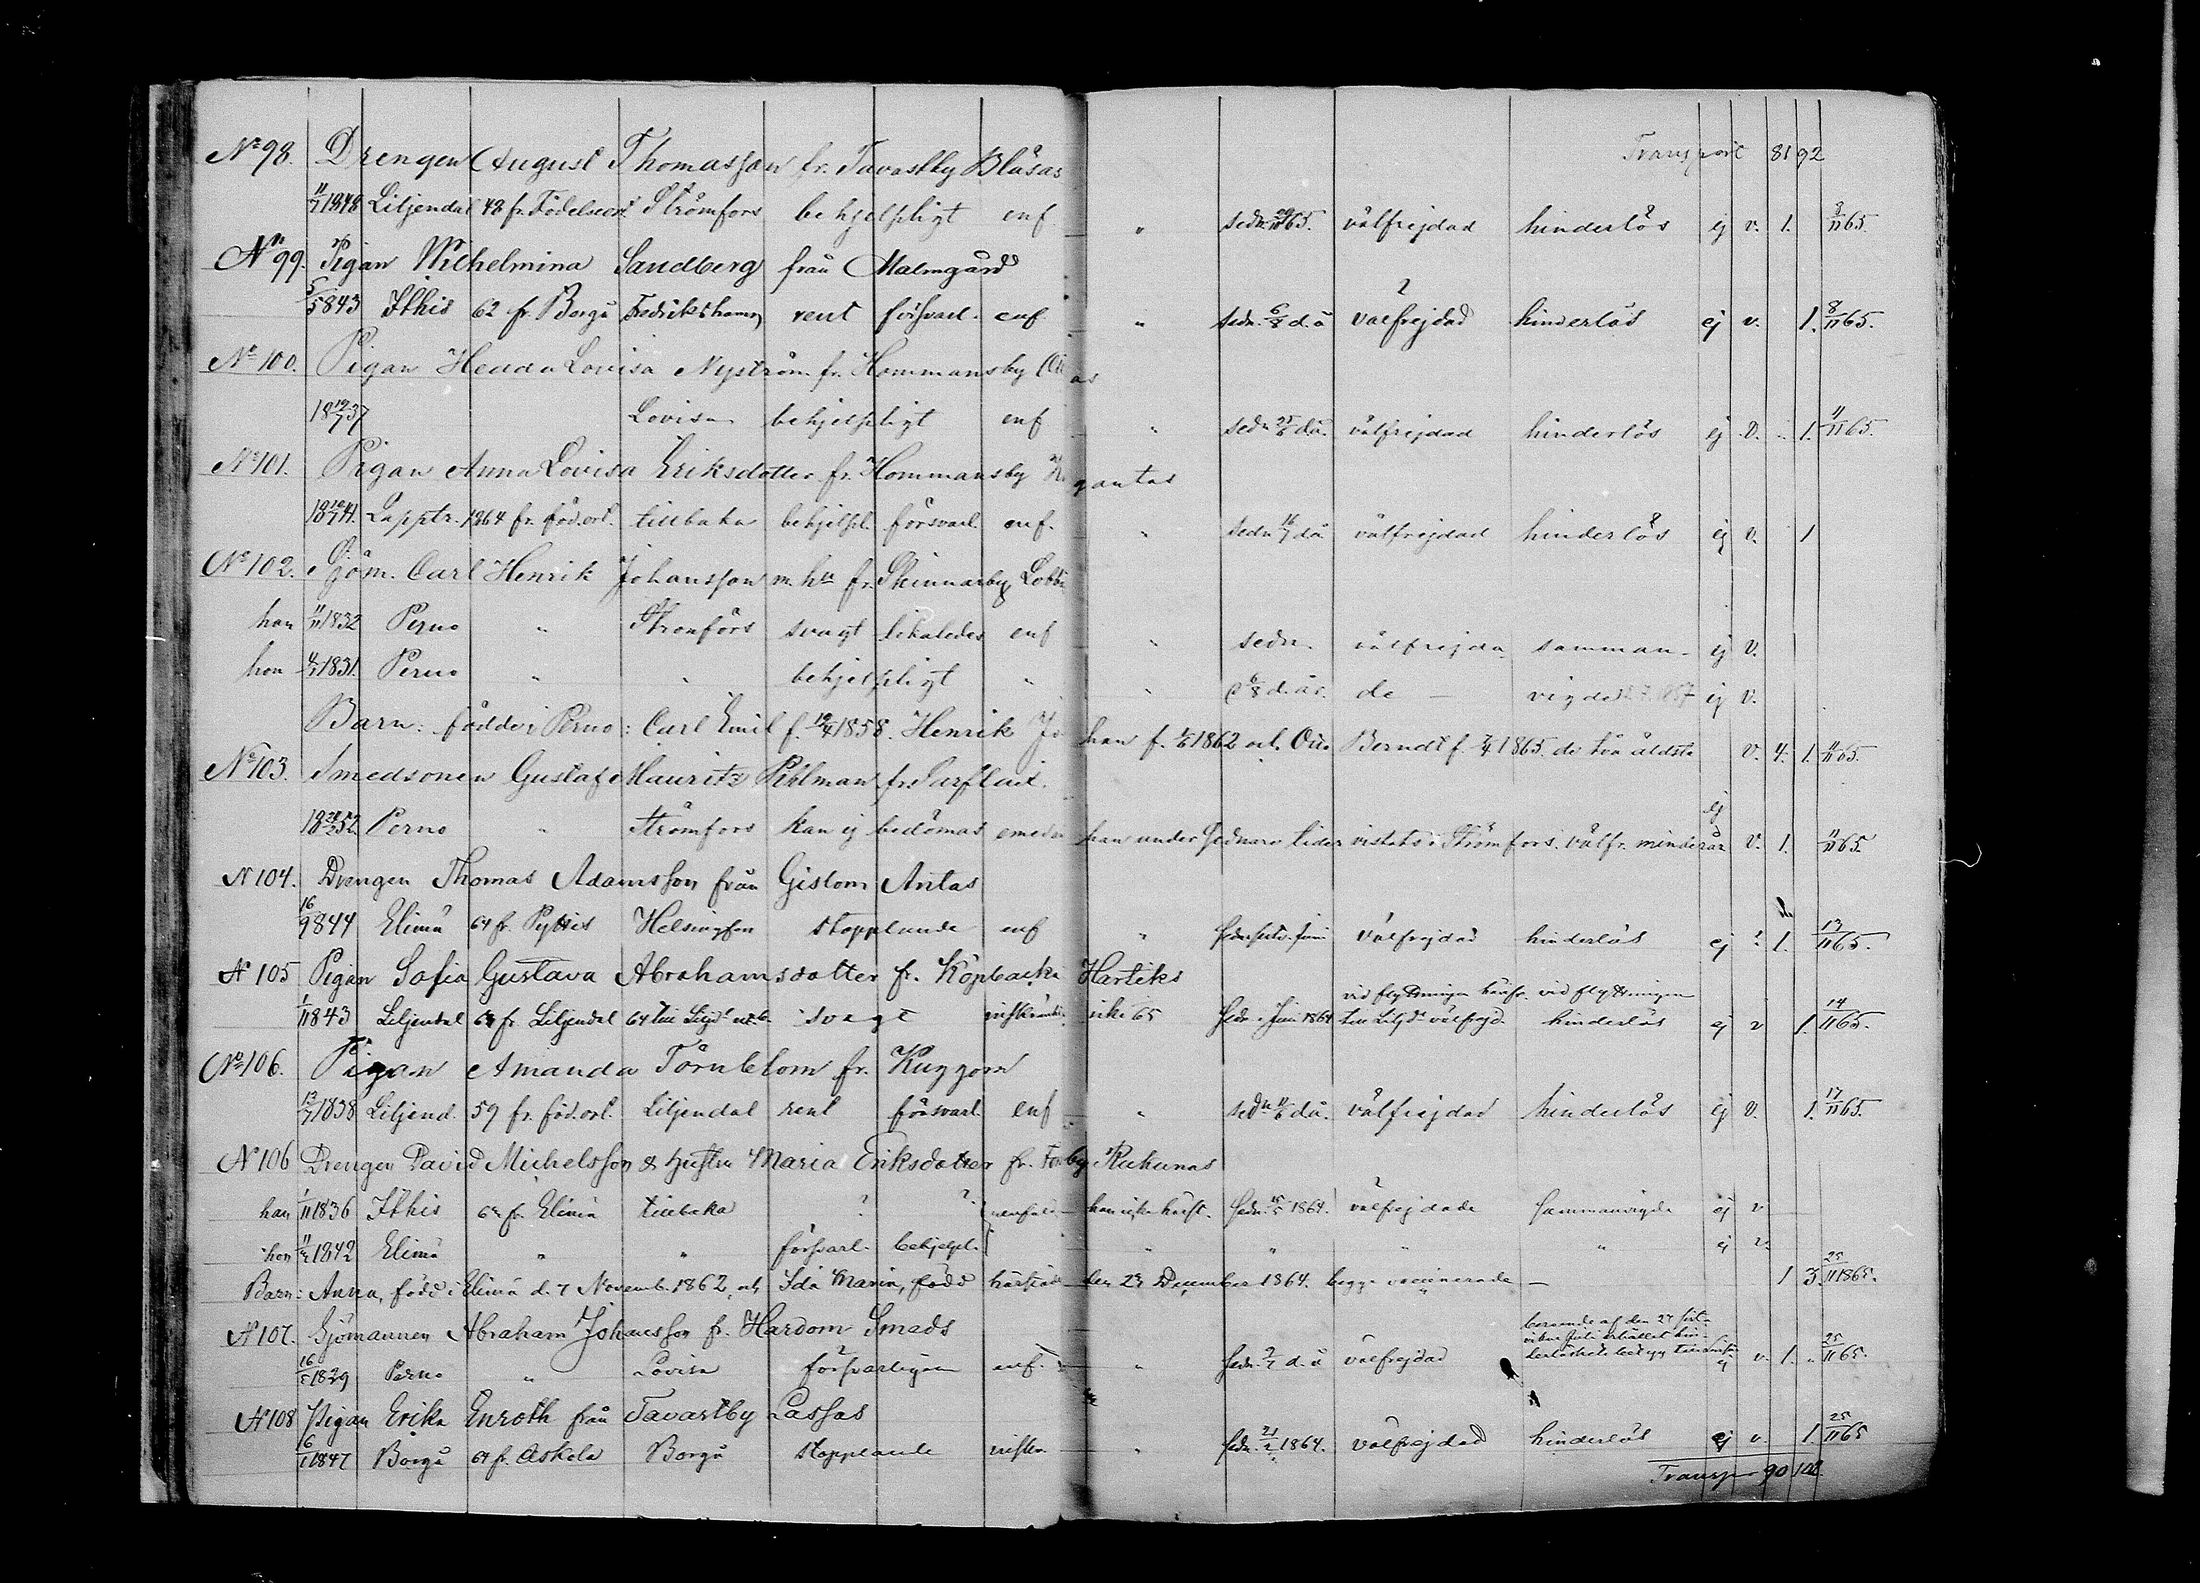 Transport 81 92
No 98. Drengen August Thomasson fr. Tavastby Bläsas
11/7 1848 Liljendal 48 fr. Födelseort. Strömfors behjelpligt enf. " sedn. 29/10 65. välfrejdad hinderlös ej v. 1. 3/11 65.
No 99. Pigan Wilhelmina Sandberg från Malmgård
5/5 843 Itthis 62 fr. Borgå Fredrikshamn rent försvarl. enf. " sedn. 6/8 d. å välfrejdad hinderlös ej v. 1. 8/11 65.
No 100. Pigan Hedda Lovisa Nyström fr. Hommansby
18 19/7 37 Lovisa behjelpligt enf " sedn 25/6 d.å. välfrejdad hinderlös ej v. 1. 11/11 65.
No 101. Pigan Anna Lovisa Eriksdotter fr. Hommansby
18 10/7 41. Lapptr. 1864 fr. föd.ort. tillbaka behjelpl. försvarl. enf. " sedn 16/7 d.å välfrejdad hinderlös ej v. 1
No 102. Sjöm. Carl Henrik Johansson m. hu fr. Skinnarby Lobb
han 11/11 1832 Perno " Strömfors svagt likaledes enf " sedn. välfrejda samman- ej v.
hon 4/7 1831. Perno " " behjelpligt " " 6/8 d. år. de — vigde 1857 ej v.
Barn: födde i Perno: Carl Emil f. 19/4 1858. Henrik Johan f. 1/6 1862 och Otto Berndt f. 7/4 1865. de två äldsta v. 4. 1. 11/11 65.
No 103. Smedsonen Gustaf Mauritz Pihlman fr. Sarflaxt.
18 28/2 52. Perno " Strömfors kan ej bedömas emedan han under sednare tider vistats i Strömfors. välfr. minderår ej v. 1. 11/11 65.
N 104. Drengen Thomas Adamsson från Gislom Antas
16/9 844 Elimä 64 fr. Pyttis Helsingfors stopplande enf " välfrejdad hinderlös ej ? 1. 13/11 65.
N 105 Pigan Sofia Gustava Abrahamsdotter fr. Köpbacka Hartiks
1/11 843 Liljendal 64 fr. Liljendal svagt icke 65 sedn. i Juni 1864 vid flyttningen härifr. till Liljd. välfrejd. vid flyttningen hinderlös ej v 1. 14/11 65.
No 106. Pigan Amanda Törnblom fr. Kuggom
13/7 1838 Liljend. 59 fr. föd.ort. Liljendal rent försvarl. enf " sedn 11/6 d.å. välfrejdad hinderlös ej v. 1. 17/11 65.
N 106 Drengen David Michelsson & hustru Maria Eriksdotter fr. Forsby Ruhunas
han 1/11 1836 Itthis 62 fr. Elimä tillbaka ? ? sedn. 15/5 1864. välfrejdade sammanvigde ej v
hon 11/2 1842 Elimä " " försvarl. behjelpl. " " " " ej v.
Barn: Anna, född i Elimä d. 7 Novemb. 1862, och Ida Maria, född härstädes den 23 December 1864. begge vaccinerade — 1 3 25/11 1865.
N 107. Sjömannen Abraham Johansson fr. Hardom Smeds
16/5 1829 Perno " Lovisa försvarligen enf. " sedn. 2/7 d. å välfrejdad beroende af den 27 sistvikne Juli erhållet hinderlöshets betyg ej v. 1. " 25/11 65.
N 108 Pigan Erika Enroth från Tavastby Lassas
16/1 1847 Borgå 64 fr. Askola Borgå stopplande " sedn. 21/2 1864. välfrejdad hinderlös ej v. 1. 25/11 65
Transp. 90 102.